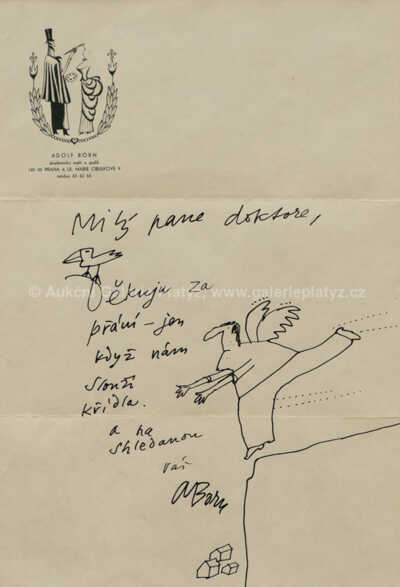 ADOLF BORN
akademický malíř a grafik
140 00 PRAHA 4, UL. MARIE CIBULKOVÉ 9
telefon 43 62 66
Milý pane doktore,
Děkuju za
© Aukční Galerie Platýz, www.galerieplatyz.cz
přání – jen
když nám
slouží
křídla.
a na
shledanou
váš
ABorn